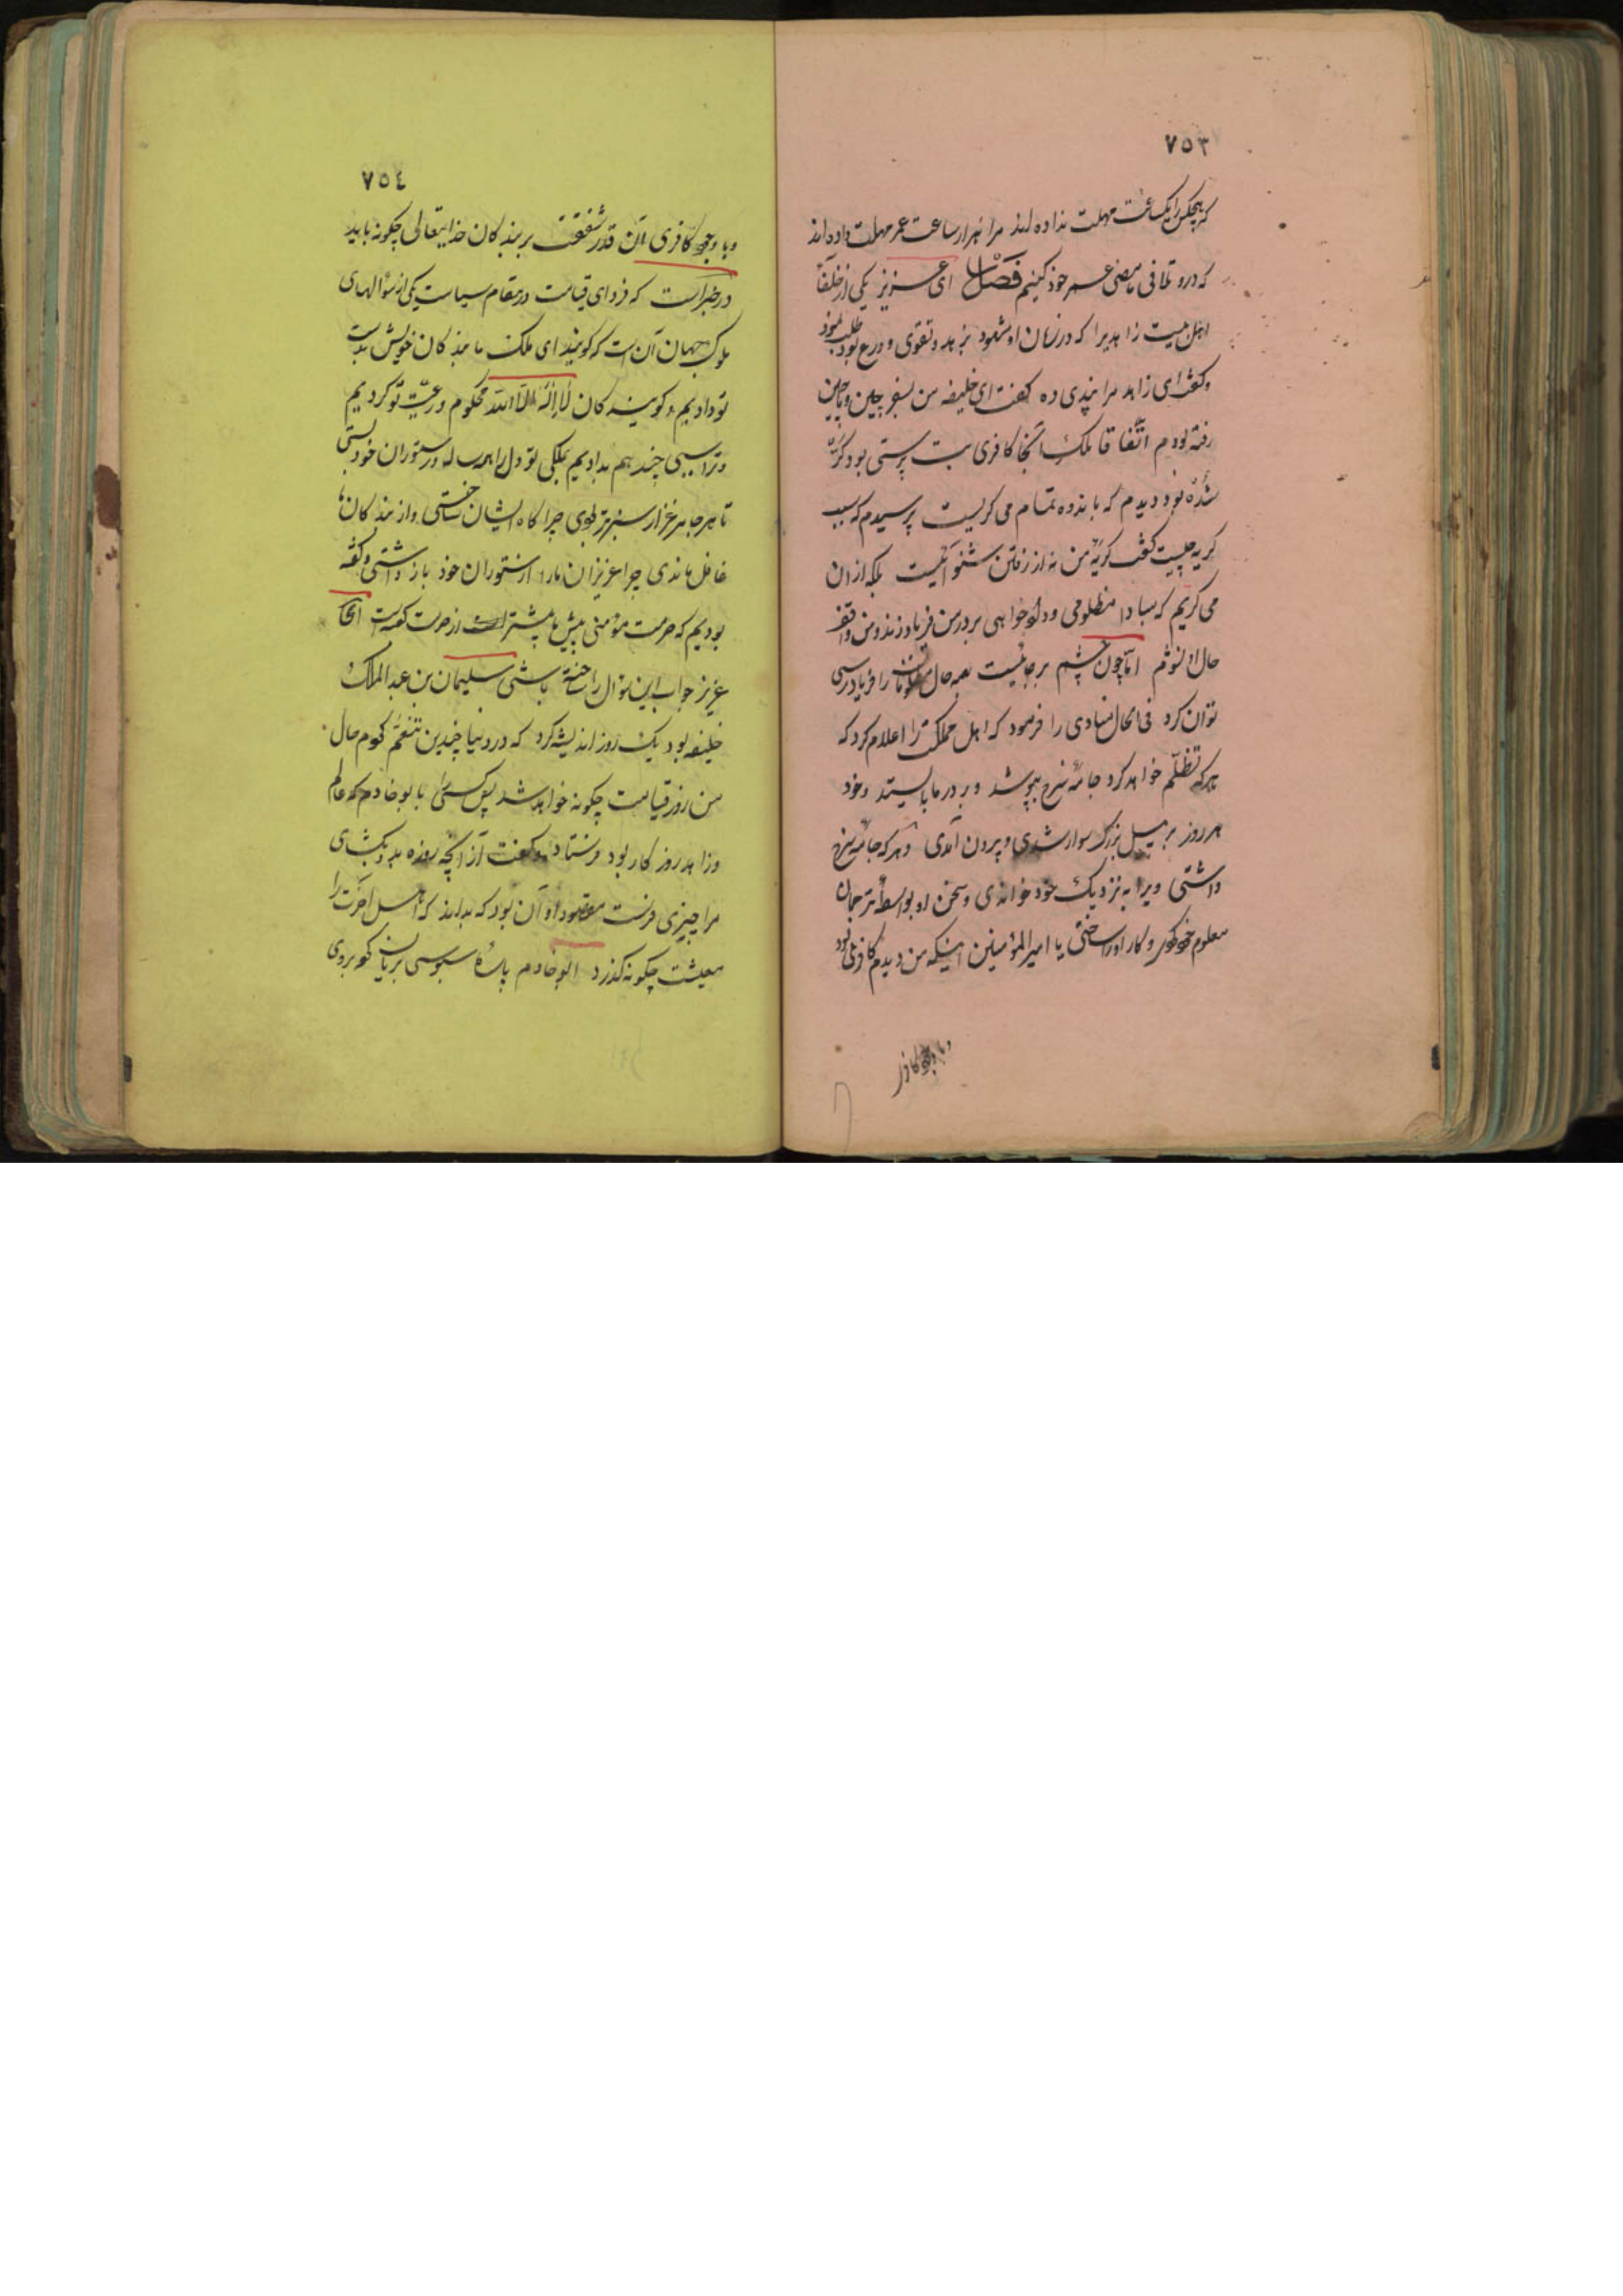 ٧٥٣
که هیچکس را یکساعت مهلت نداده اند مرا هزار ساعت عمر مهلت داده اند
که درو تلافی مامضی عمر خود کنیم فصل ای عزیز یکی از خلفآ
اهل زاهدیرا که در زمان او مشهور بزهد و تقوی و ورع بود طلب نمود
وکفت ای زاهد مرا پندی ده کفت ای خلیفه من بسفر چین وماچین
رفته بودم اتّفاقا ملک آنجا کافری بت پرستی بود کر
شده بود دیدم که باندوه تمام می کریست پرسیدم که سبب
کریه چیست کفت کریۀ من نه از رفتن شنوائیست بلکه ازان
می کریم که مبادا مظلومی ودادخواهی بر در من فریاد زند ومن واقف
حال او نشوم امّا چون چشم برجاست بهر حال مظلومان را فریادرسی
توان کرد فی الحال منادی را فرمود که اهل مملکت را اعلام کرد که
هرکه تظلّم خواهد کرد جامۀ سرخ بپوشد وبر در ما بایستد وخود
هر روز بر پیل بزرک سوار شدی وبیرون آمدی وهرکه جامۀ سرخ
داشتی ویرا به نزدیک خود خواندی وسخن او بواسطۀ ترجمان
معلوم خود کردی وکار او ساختی یا امیر المؤمنین اینکه من دیدم کافری بود
وبا وجود کافری
٧٥٤
وبا وجود کافری آن قدر شفقت بر بندکان خدایتعالی چکونه باید
در خبر است که فردای قیامت در مقام سیاست یکی از سؤالهای
ملوک جهان آن است که کویند ای ملک ما بندکان خویش بدست
تو دادیم و کویندکان لا اله الا الله محکوم ورعیّت تو کردیم
وترا اسبی چند هم بدادیم بملکی تو دل را در ستوران خود بستی
تا هرجا مرغزار سبزتر بودی چراکاه ایشان ساختی واز بندکان ما
غافل ماندی چرا عزیزان مارا از ستوران خود باز داشتی وکفته
بودیم که حرمت مؤمنی پیش ما بیشتر است از حرمت کعبه است آیا
عزیز جواب این سؤال را ساخته باشی سلیمان بن عبد الملک
خلیفه بود یک روز اندیشه کرد که در دنیا چندین تنعّم کردم حال
من روز قیامت چکونه خواهد شد پس کسی را بابوخادم که عالم
وزاهد روزکار بود فرستاد وکفت از آنچه روزه بدو بکشای
مرا چیزی فرست مقصود او آن بود که بداند که اهل آخرت را
معیشت چکونه کذرد ابوخادم پارۀ سبوسی بریان کرده بودی